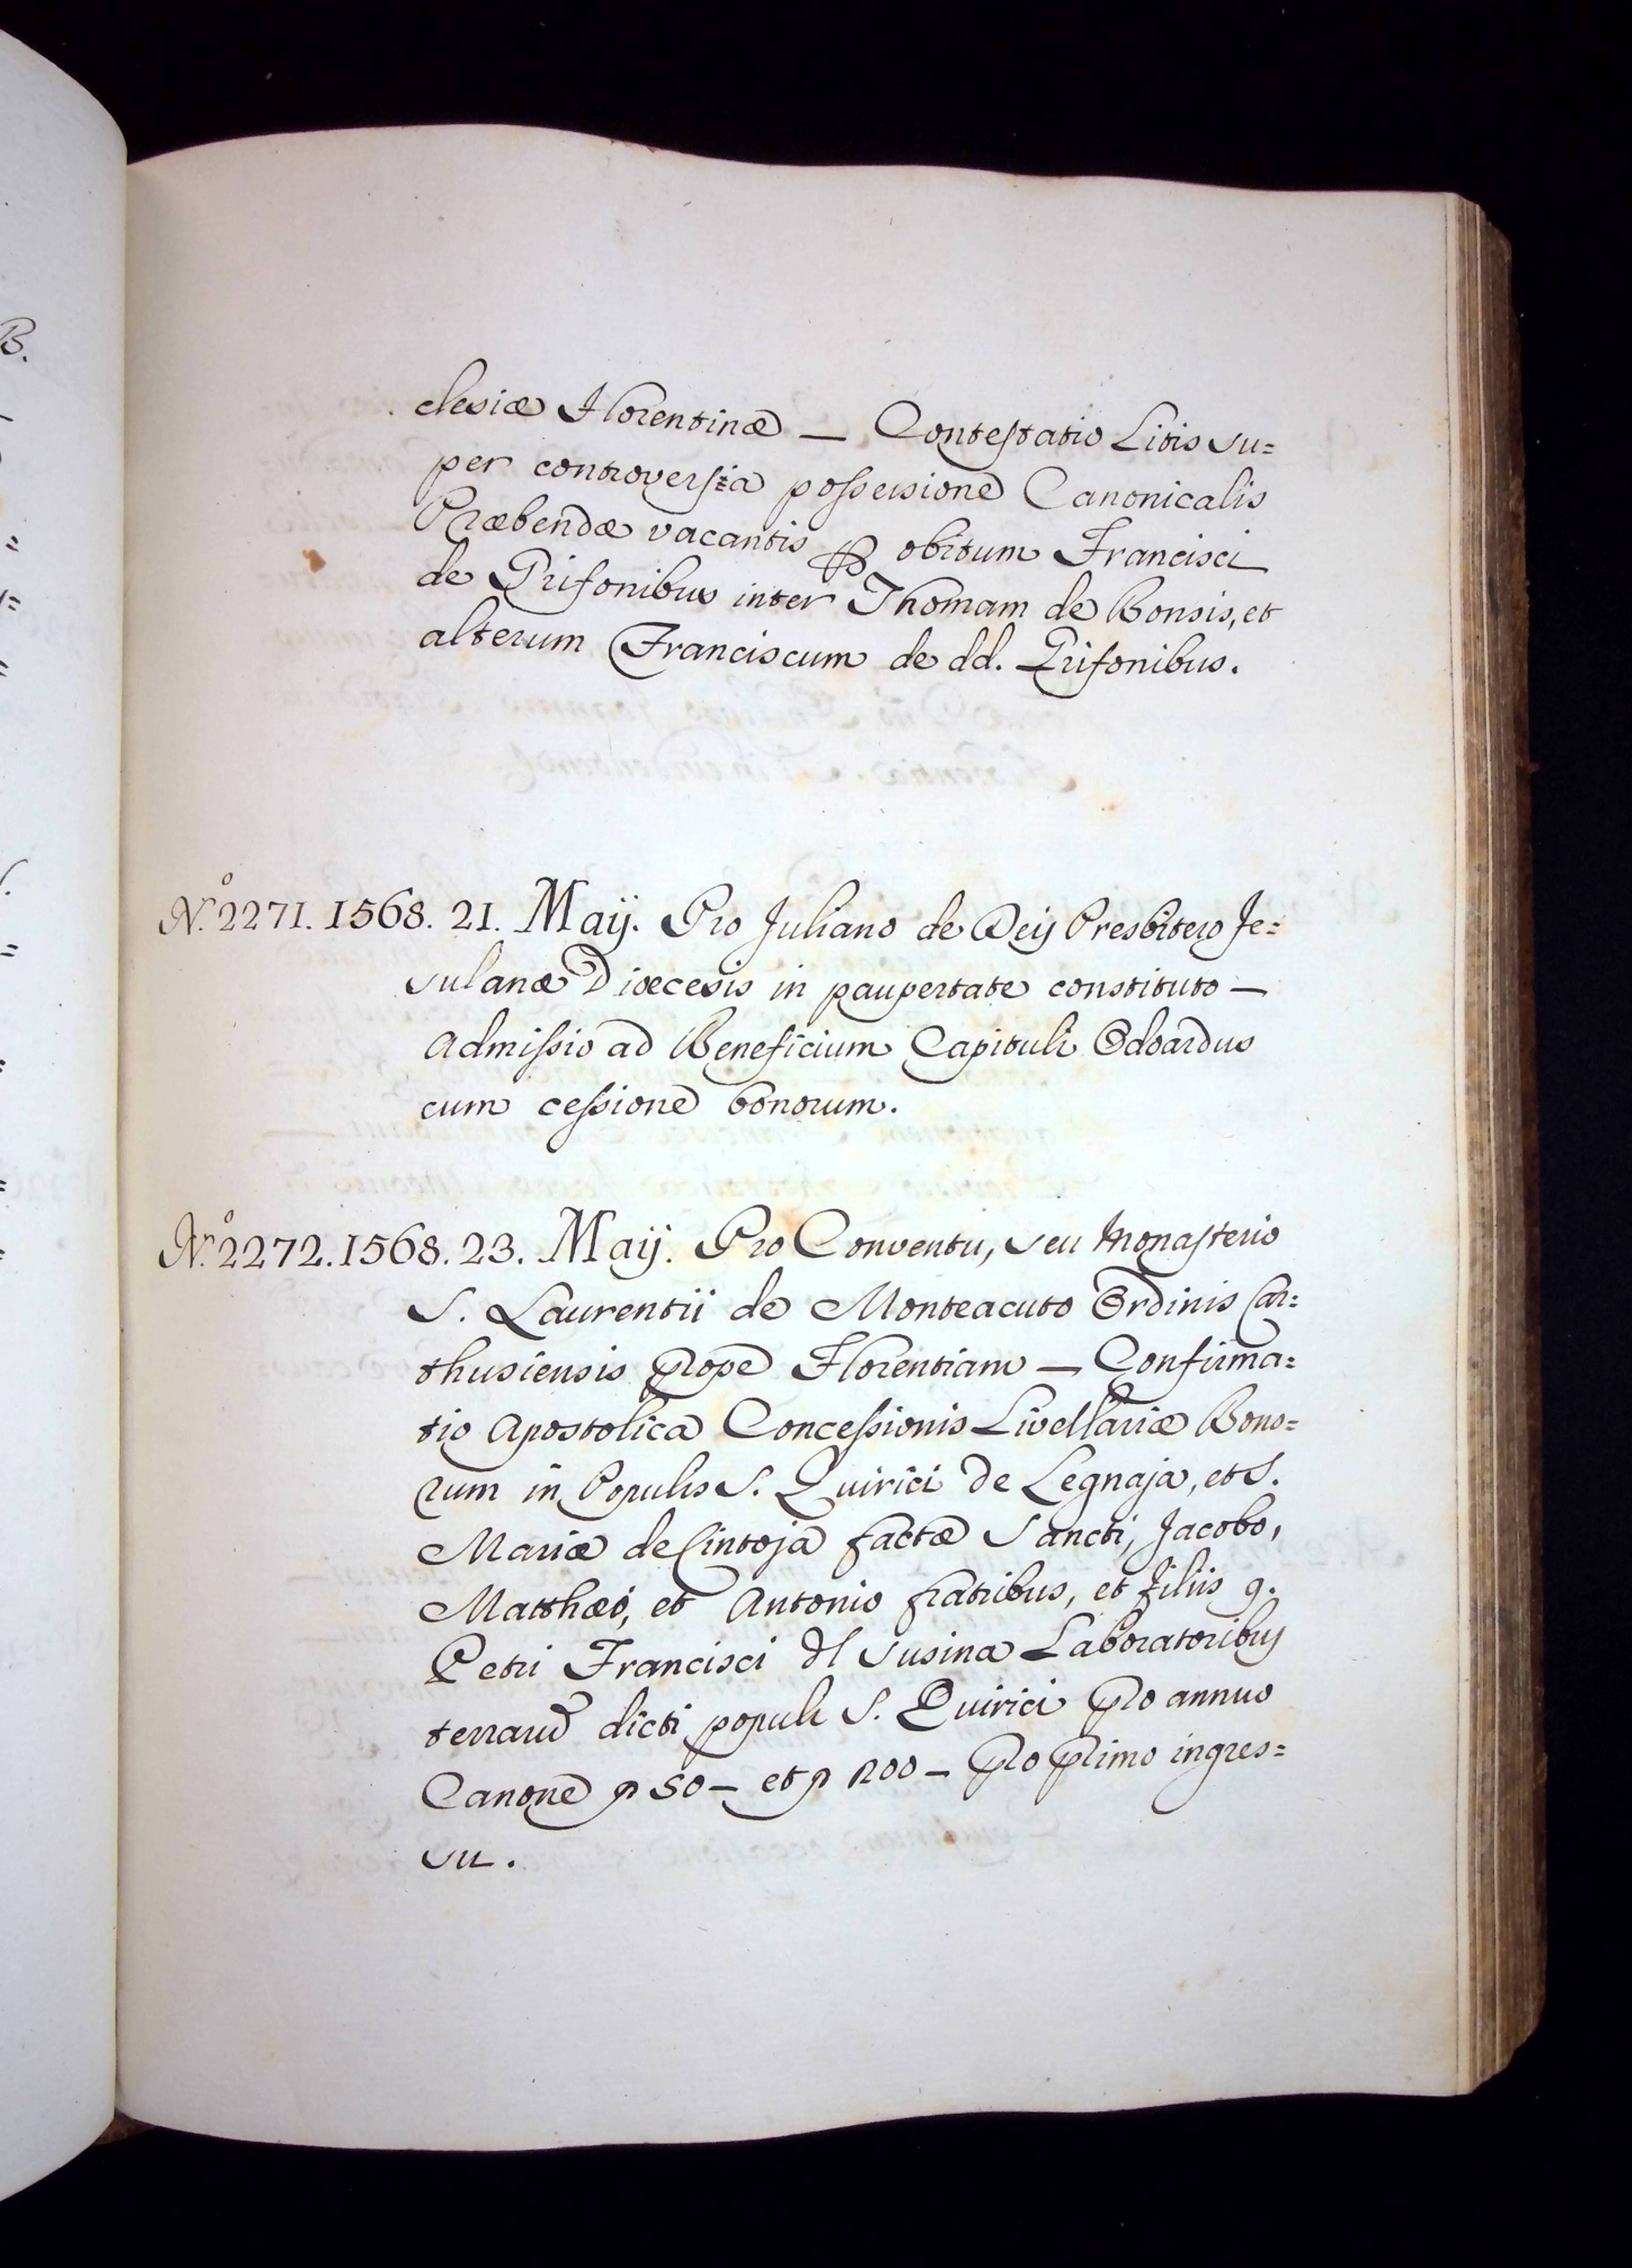 clesiæ Florentinæ — Contestatio Litis su=
per controversia possessione Canonicalis
Præbendæ vacantis per obitum Francisci
de Grifonibus inter Thomam de Bonsis, et
alterum Franciscum de dd. Grifonibus.
N.º 2271. 1568. 21. Maij. Pro Juliano de Deij Presbitero Fe=
sulanæ Dioecesis in paupertate constituto —
Admissio ad Beneficium Capituli Odoardus
cum cessione bonorum.
N.º 2272. 1568. 23. Maij. Pro Conventu, seu Monasterio
S. Laurentii de Monteacuto Ordinis Car=
thusiensis prope Florentiam — Confirma=
tio Apostolica Concessionis Livellariæ Bono=
rum in Populis S. Quirici de Legnaja, et S.
Mariæ de Cintoja factæ Sancti, Jacobo,
Matthæo, et Antonio fratribus, et filiis q.
Petri Francisci del Susina Laboratoribus
terrarum dicti populi S. Quirici pro annuo
Canone 50 — et 200 — pro primo ingres=
su.
B.